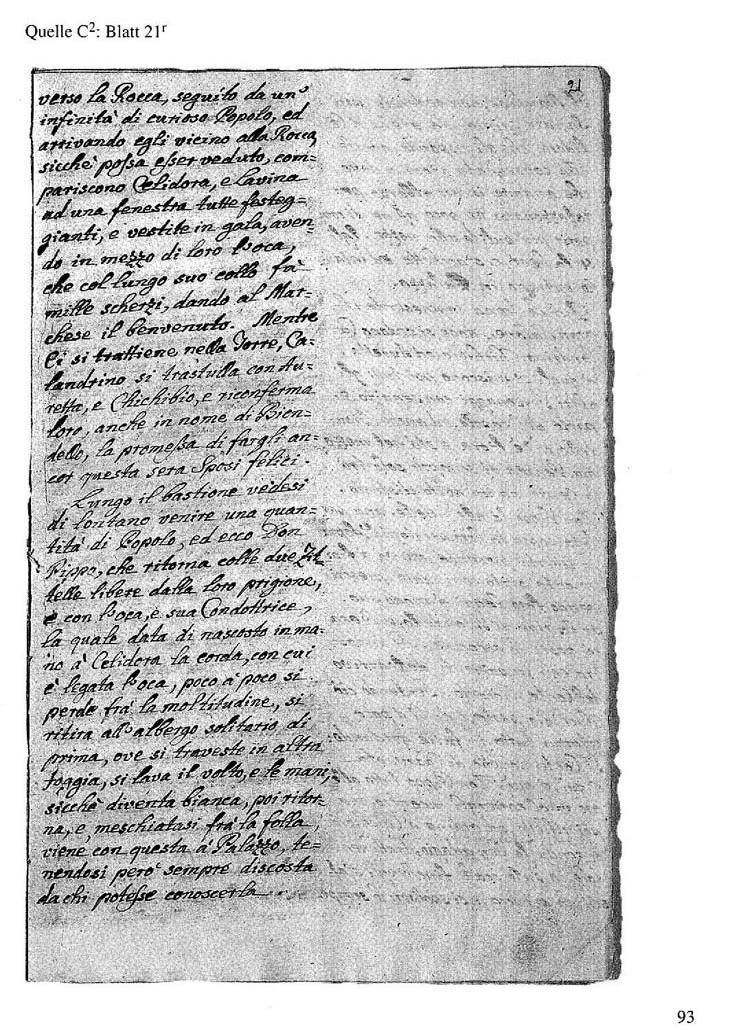 Quelle C²: Blatt 21ʳ
21
verso la Rocca, seguito da un'
infinità di curioso Popolo, ed
arrivando egli vicino alla Rocca,
sicchè possa esser veduto, com=
pariscono Celidora, e Lavina
ad una fenestra tutte festeg=
gianti, e vestite in gala, aven=
do in mezzo di loro l'oca,
che col lungo suo collo fà
mille scherzi, dando al Mar=
chese il benvenuto. Mentre
Ei si trattiene nella Torre, Ca=
landrino si trastulla con Au=
retta, e Chichibio, e riconferma
loro, anche in nome di Bion=
dello, la promessa di fargli an=
cor questa sera Sposi felici.
Lungo il bastione vedesi
di lontano venire una quan=
tità di Popolo, ed ecco Don
Pippo, che ritorna colle due Zit=
telle libere dalla loro prigione,
e con l'oca, e sua Condottrice,
la quale data di nascosto in ma=
no à Celidora la corda, con cui
è legata l'oca, poco a poco si
perde frà la moltitudine, si
ritira all'albergo solitario di
prima, ove si traveste in altra
foggia, si lava il volto, e le mani,
sicchè diventa bianca, poi ritor=
na, e meschiatasi frà la folla,
viene con questa à Palazzo, te=
nendosi però sempre discosta
da chi potesse conoscerla.
93